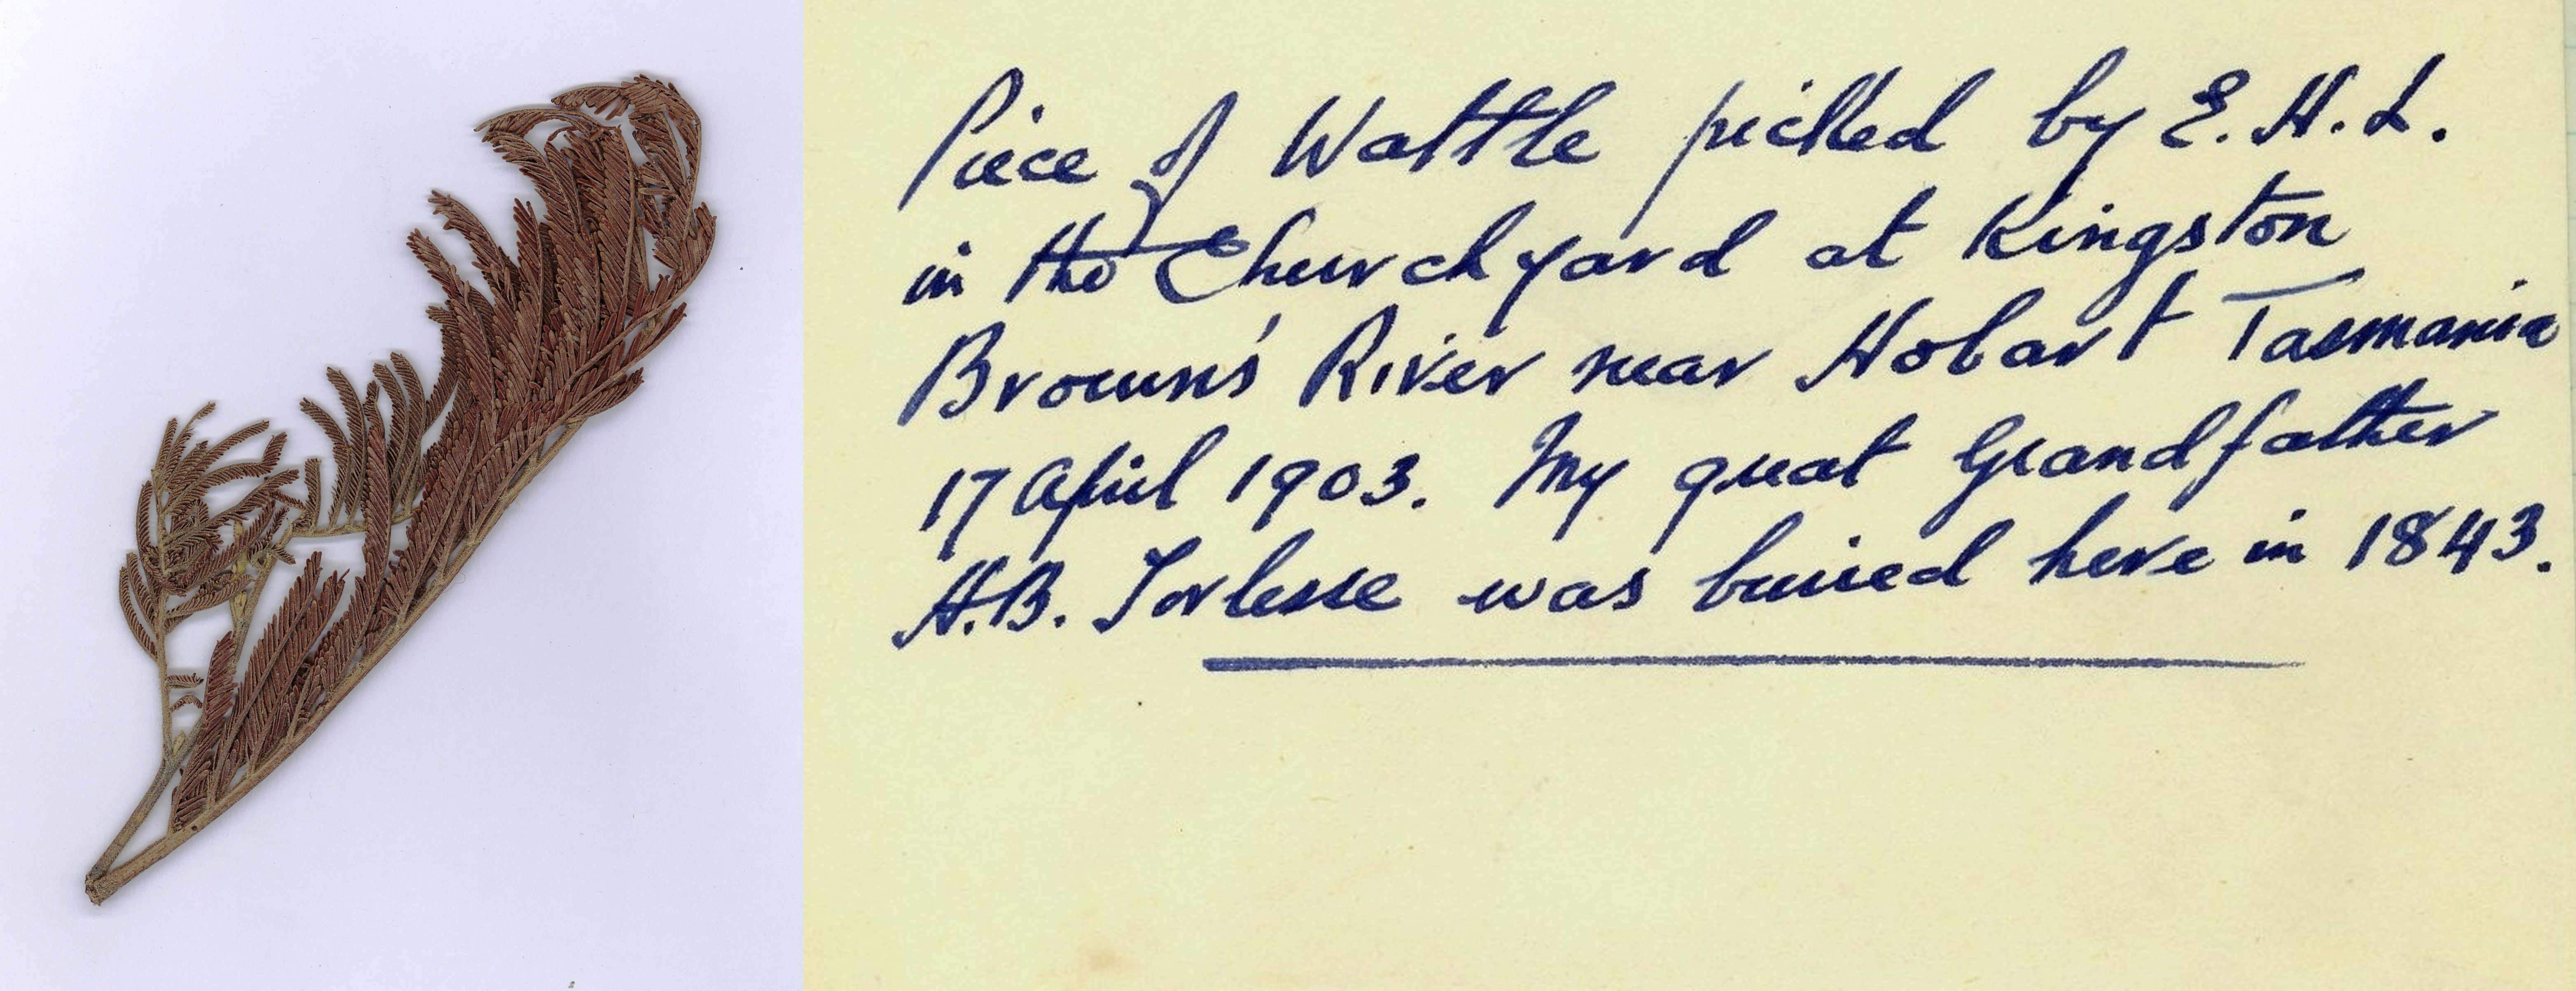 Piece of Wattle picked by E. H. L.
in the Churchyard at Kingston
Brown's River near Hobart Tasmania
17 April 1903. My great Grandfather
H.B. Torlesse was buried here in 1843.